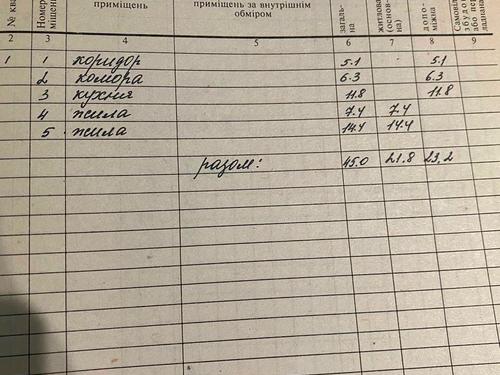 № ква
Номер
міщень
приміщень
приміщень за внутрішнім
обміром
загаль-
на
житлова
(основ-
на)
допо-
міжна
Самові
збудо
або пе
ладнана
2 3 4 5 6 7 8 9
1 1 коридор 5.1 - 5.1
2 комора 6.3 6.3
3 кухня 11.8 11.8
4 жила 7.4 7.4
5. жила 14.4 14.4
разом: 45.0 21.8 23,2